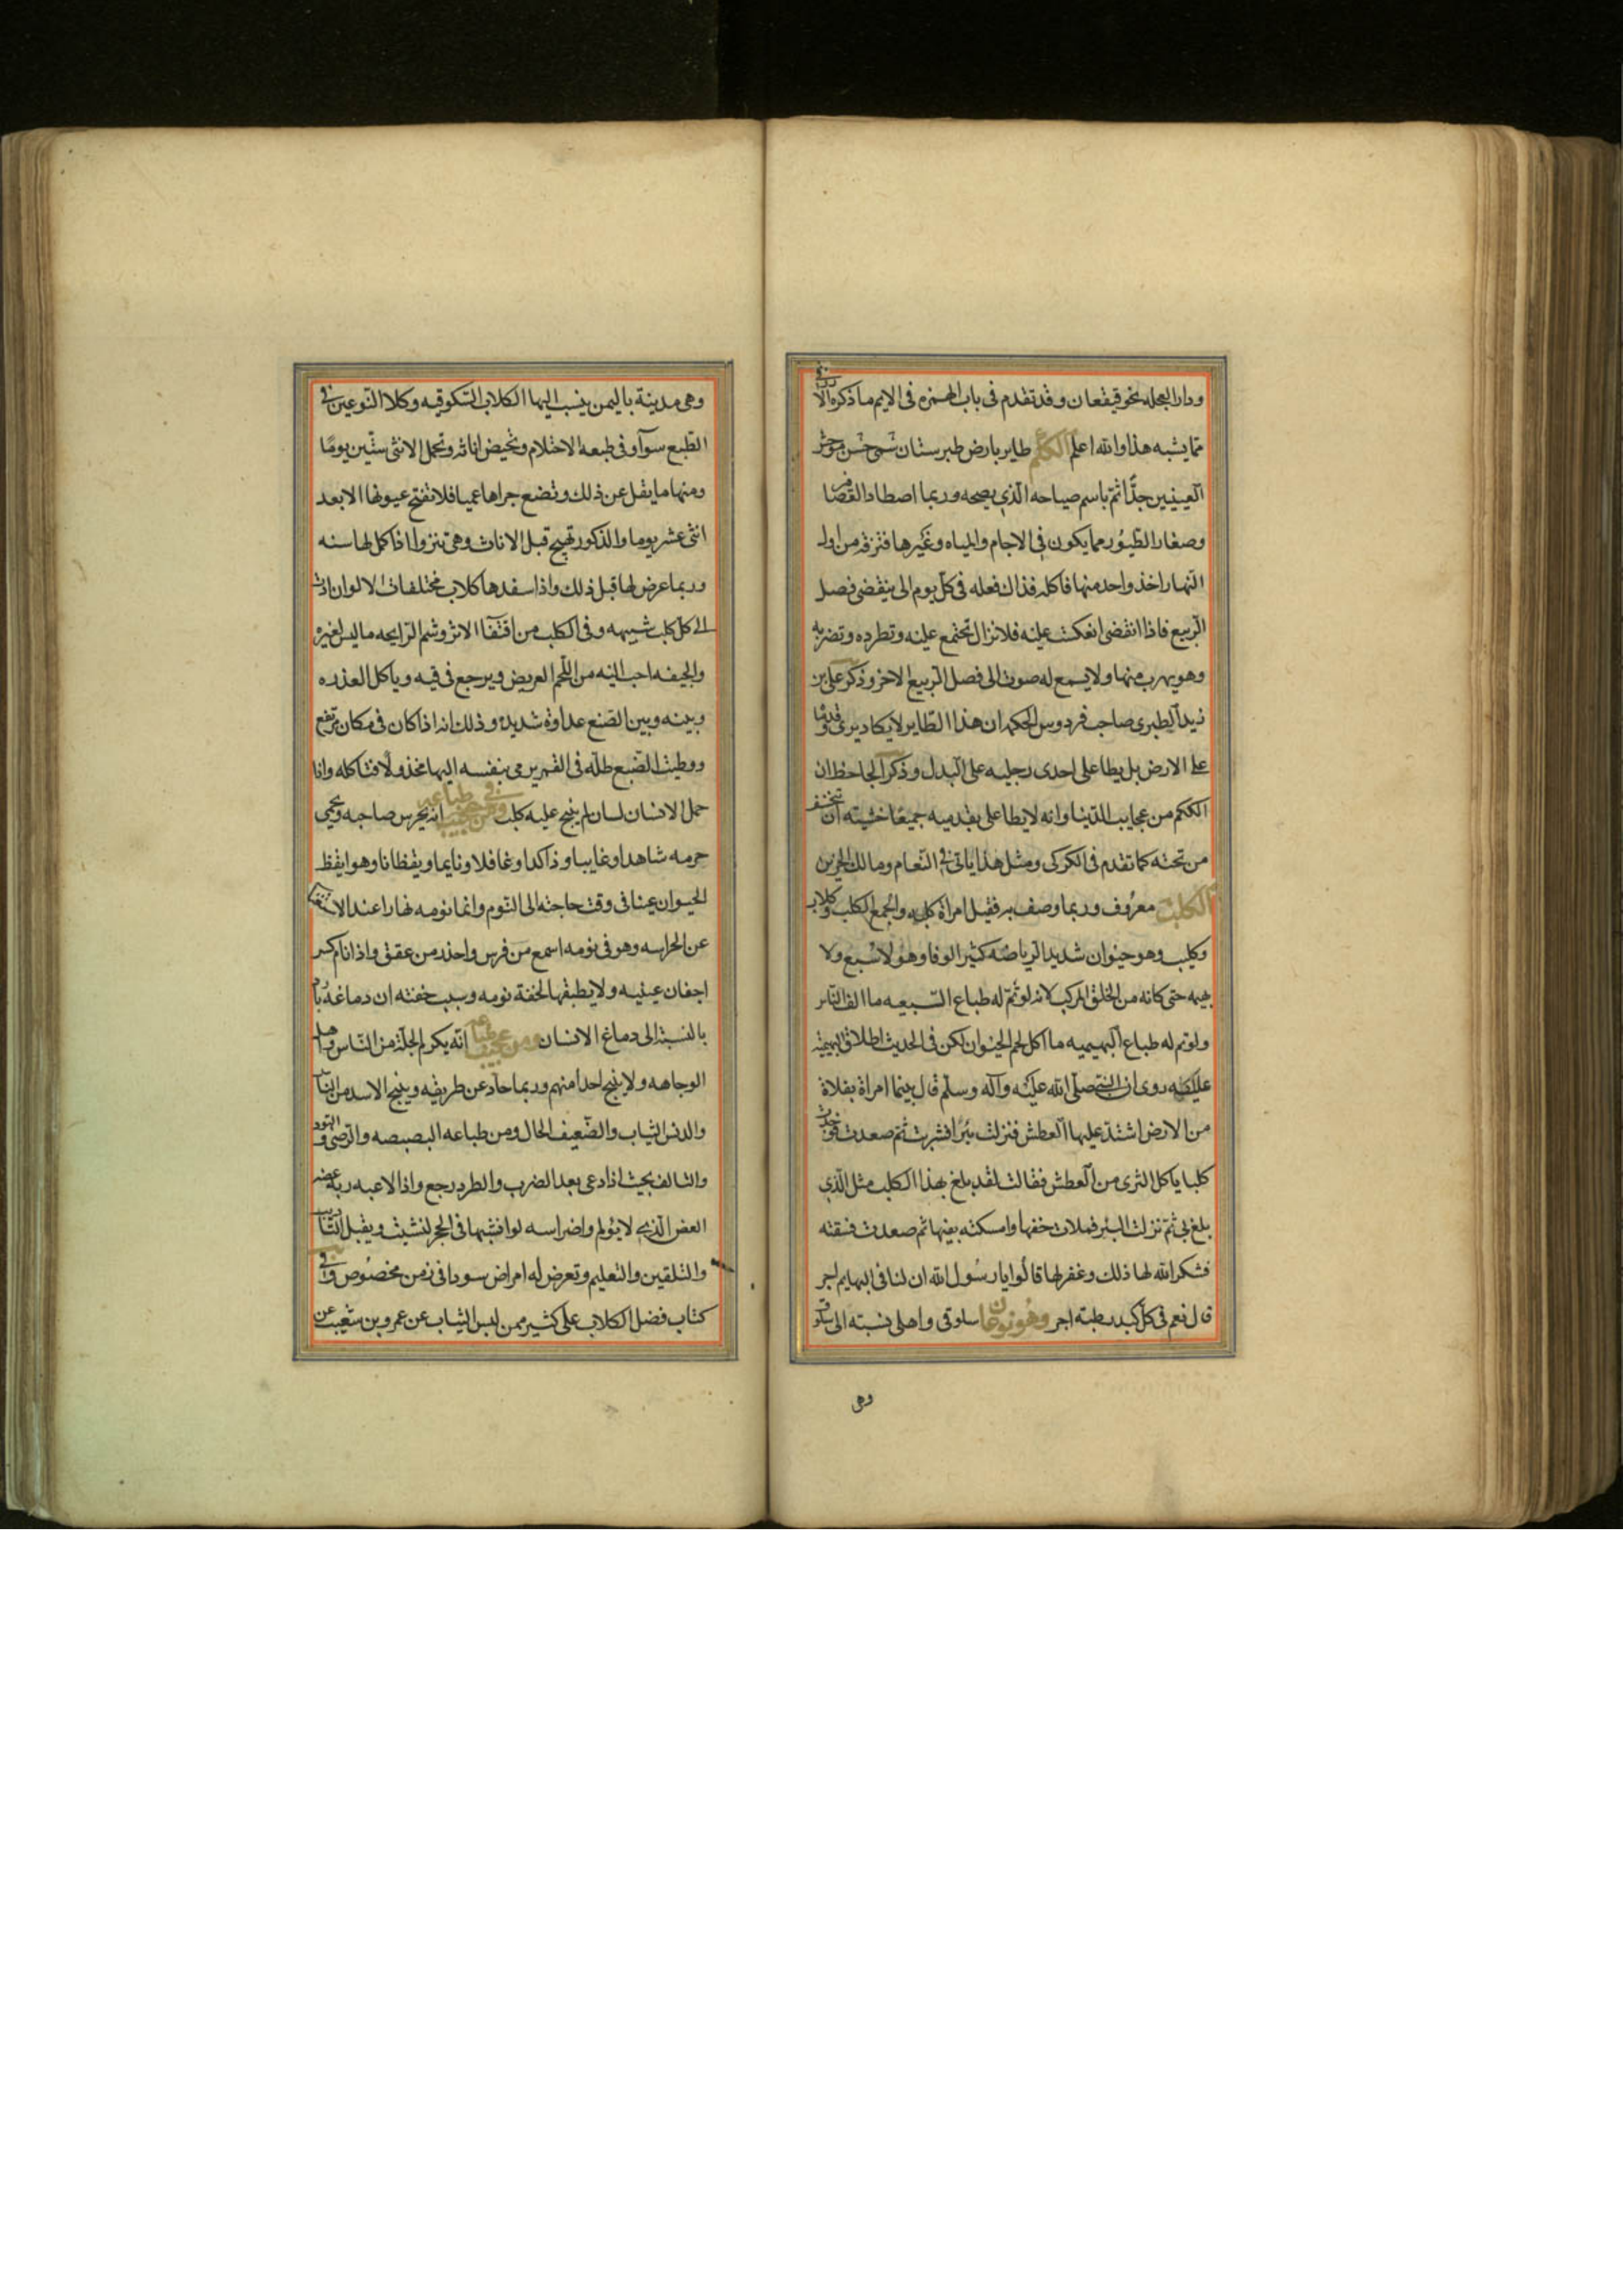 ودار العجله نحو قيقعان وقد تقدم فى باب الهمزه فى الايم ما ذكره الازرقى
مما يشبه هذا والله اعلم الككم طاير بارض طبرستان حسن موشى
العينين جدًّا ثم باسم صياحه الذى يصيحه وربما اصطاد العصافير
وصغار الطيور مما يكون فى الاجام والمياه وغيرها فتزقه من اول
النهار اخذ واحد منها فاكله فذاك فعله فى كل يوم الى ينقضى فصل
الربيع فاذا انقضى انعكست عليه فلا تزال تجتمع عليه وتطرده وتضربه
وهو يهرب منها ولا يسمع له صوت الى فصل الربيع الاخر وذكر على بن
زيد الطبرى صاحب فردوس الحكمه ان هذا الطاير لا يكاد يرى وقدماه
على الارض بل يطا على احدى رجليه على البدل وذكر الجاحظ ان
الككم من عجايب الدنيا وانه لا يطا على بقدميه جميعًا خشيته ان تنخسف
من تحته كما تقدم فى الكركى ومثل هذا ياتى فى النعام ومالك الحزين
الكلب معروف وربما وصف به فقيل امراة كلبه والجمع الكلب وكلاب
وكليب وهو حيوان شديد الرياضه كثير الوفا وهو لا سبع ولا
بهيمه حتى كانه من الخلق المركب لانه لو تم له طباع السبعيه ما الف الناس
ولو تم له طباع البهيميه ما اكل لحم الحيوان لكن فى الحديث اطلاق البهيمة
عليه روى ان النبى صلى الله عليه وآله وسلم قال بينما امراة بفلاة
من الارض اشتد عليها العطش فنزلت بئرا فشربت ثم صعدت فوجدت
كلبا ياكل الثرى من العطش فقالت لقد بلغ بهذا الكلب مثل الذى
بلغ بى ثم نزلت البئر فملات خفها وامسكته بفيها ثم صعدت فسقته
فشكر الله لها ذلك وغفر لها قالوا يا رسول الله ان لنا فى البهايم اجر
قال نعم فى كل كبد رطبته اجر وهو نوعان سلوقى واهلى نسبته الى سلوق
وهى
وهى مدينة باليمن ينسب اليها الكلاب السلوقيه وكلا النوعين فى
الطبع سوآ وفى طبعه الاحتلام وتحيض اناثه وتحمل الانثى ستين يومًا
ومنها ما يقل عن ذلك وتضع جراها عميا فلا تفتح عيونها الا بعد
اثنى عشر يوما والذكور تهيج قبل الاناث وهى تنزو اذا كمل لها سنه
وربما عرض لها قبل ذلك واذا سفدها كلاب مختلفات الالوان ادت
الى كل كلب شبيهه وفى الكلب من اقتفا الاثر وشم الرايحه ما ليس لغيره
والجيفه احب اليه من اللحم الغريض ويرجع فى قيه وياكل العذره
وبينه وبين الضبع عداوة شديدة وذلك انه اذا كان فى مكان مرتفع
ووطيت الضبع ظله فى القمر يرمى بنفسه اليها مخذولا فتاكله واذا
حمل الانسان لسان لم ينبح عليه كلب ومن عجيب طباعه انه يحرس صاحبه ويحمى
حرمه شاهدا وغايبا وذاكرا وغافلا ونايما ويقظانا وهو ايقظ
الحيوان عينا فى وقت حاجته الى النوم وانما نومه نهارا عند الاستغنا
عن الحراسه وهو فى نومه اسمع من فرس واحذر من عقق واذا نام كسر
اجفان عينيه ولا يطبقها لخفة نومه وسبب خفته ان دماغه بارد
بالنسبة الى دماغ الانسان ومن عجيب طباعه انه يكرم الجلة من الناس واهل
الوجاهه ولا ينبح احدا منهم وربما حاد عن طريقه وينبح الاسود من الناس
والدنس الثياب والضعيف الحال ومن طباعه البصبصه والترضى والتودد
والتالف بحيث اذا دعى بعد الضرب والطرد رجع واذا لاعبه ربه عضه
العض الذى لا يؤلم واضراسه لو انشبها فى الحجر لنشبت ويقبل التاديب
والتلقين والتعليم وتعرض له امراض سودا فى زمن مخصوص وفى
كتاب فضل الكلاب على كثير ممن لبس الثياب عن عمرو بن شعيب عن